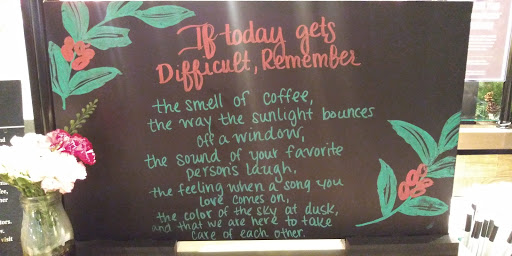 If today gets
Difficult, Remember
the smell of coffee,
the way the sunlight bounces
off a window,
the sound of your favorite
persons laugh,
the feeling when a song you
love comes on,
the color of the sky at dusk,
and that we are here to take
care of each other.
visit